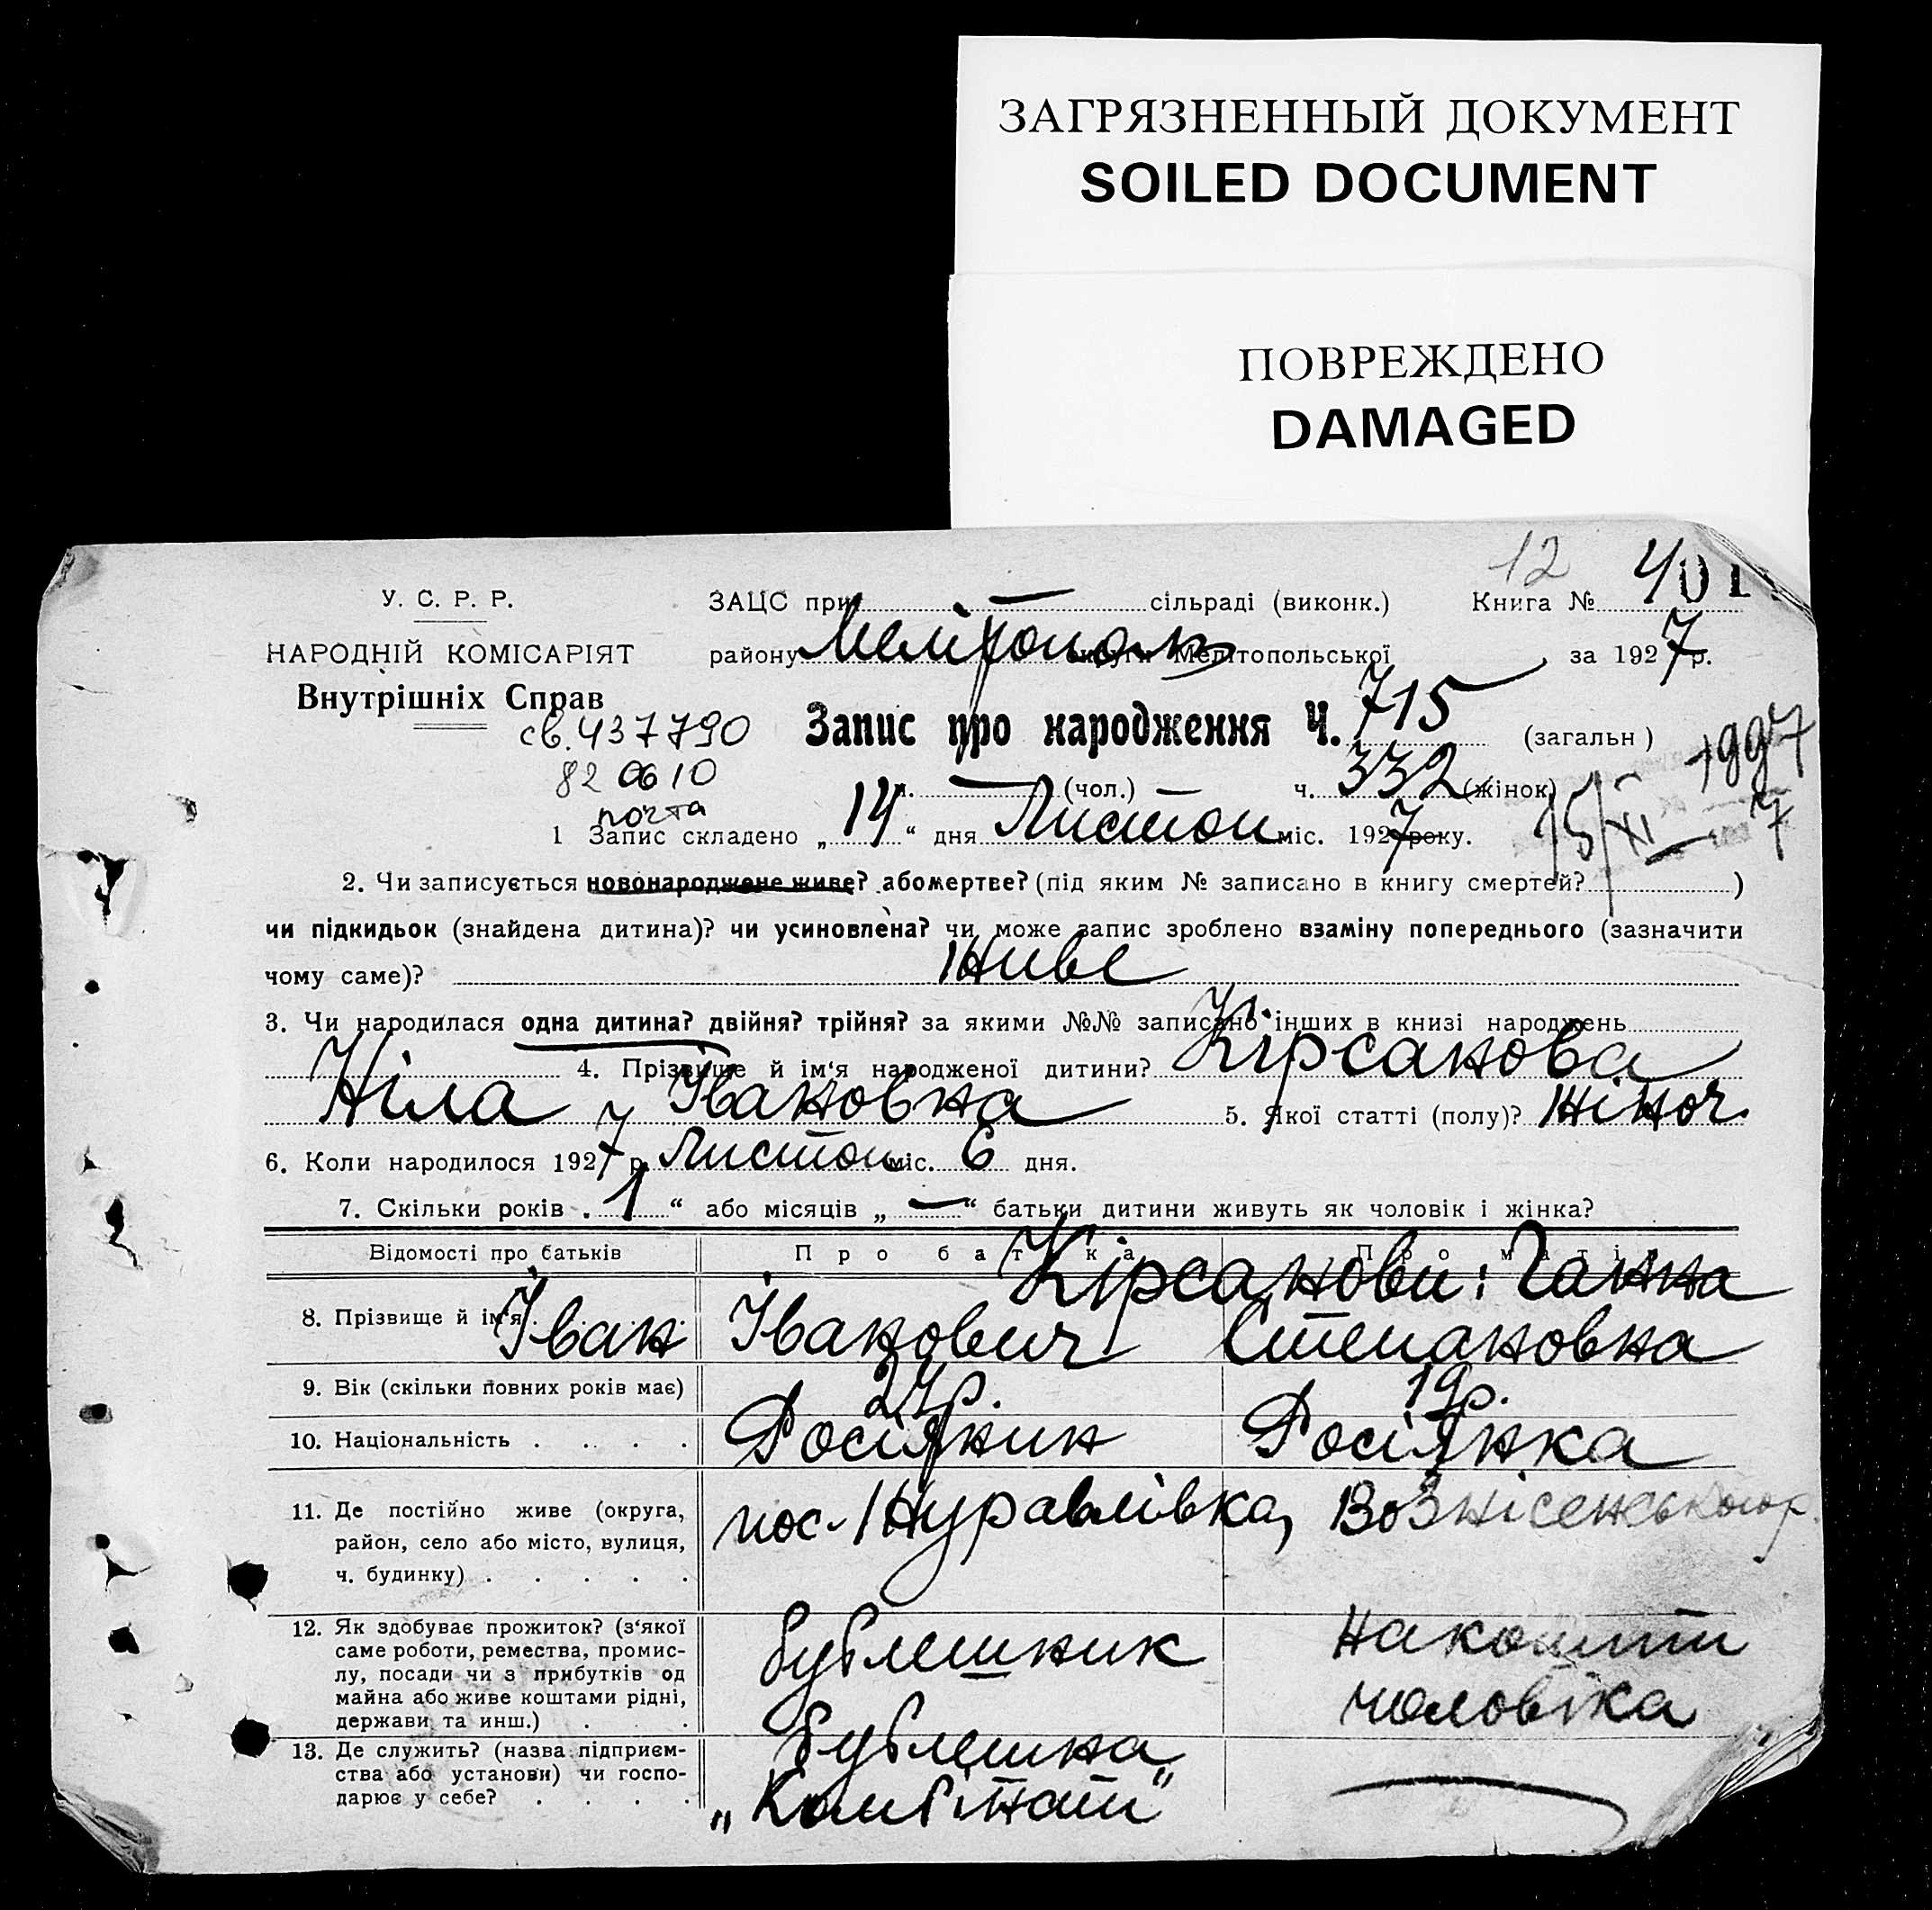 ЗАГРЯЗНЕННЫЙ ДОКУМЕНТ
SOILED DOCUMENT
ПОВРЕЖДЕНО
DAMAGED
12
У. С. Р. Р.
ЗАЦС при — сільраді (виконк.) Книга № 401
НАРОДНІЙ КОМІСАРІЯТ
району Мелітополь округи Мелітопольської за 1927 р.
Внутрішніх Справ
св. 437790
Запис про народження Ч. 715 (загальн)
1997
820610
— (чол.) ч. 332 (жінок)
почта
15/XI 7
1 Запис складено „14“ дня Листоп міс. 1927 року.
2. Чи записується новонароджене живе? або мертве? (під яким № записано в книгу смертей? )
чи підкидьок (знайдена дитина)? чи усиновлена? чи може запис зроблено взаміну попереднього (зазначити
чому саме)? Живе
3. Чи народилася одна дитина? двійня? трійня? за якими №№ записано інших в книзі народжень
4. Прізвище й ім‘я народженої дитини? Кірсанова
Ніла Івановна 5. Якої статті (полу)? жіноч.
6. Коли народилося 1927 р. Листоп міс. 6 дня.
7. Скільки років „1“ або місяців „—“ батьки дитини живуть як чоловік і жінка?
Відомості про батьків Про батька Про матір
Кірсанови: Ганна
8. Прізвище й ім‘я Іван Іванович Степановна
9. Вік (скільки повних років має) 27р. 19р.
10. Національність . . . . Росіянин Росіянка
11. Де постійно живе (округа,
район, село або місто, вулиця,
ч. будинку) . . . . .
пос. Журавлівка, Вознісенського р.
12. Як здобуває прожиток? (з‘якої
саме роботи, ремества, промис-
лу, посади чи з прибутків од
майна або живе коштами рідні,
держави та инш.) . . .
бублешник
на кошти
чоловіка
13. Де служить? (назва підприєм-
ства або установи) чи госпо-
дарює у себе? . . . .
бублешна
„Комбінат“